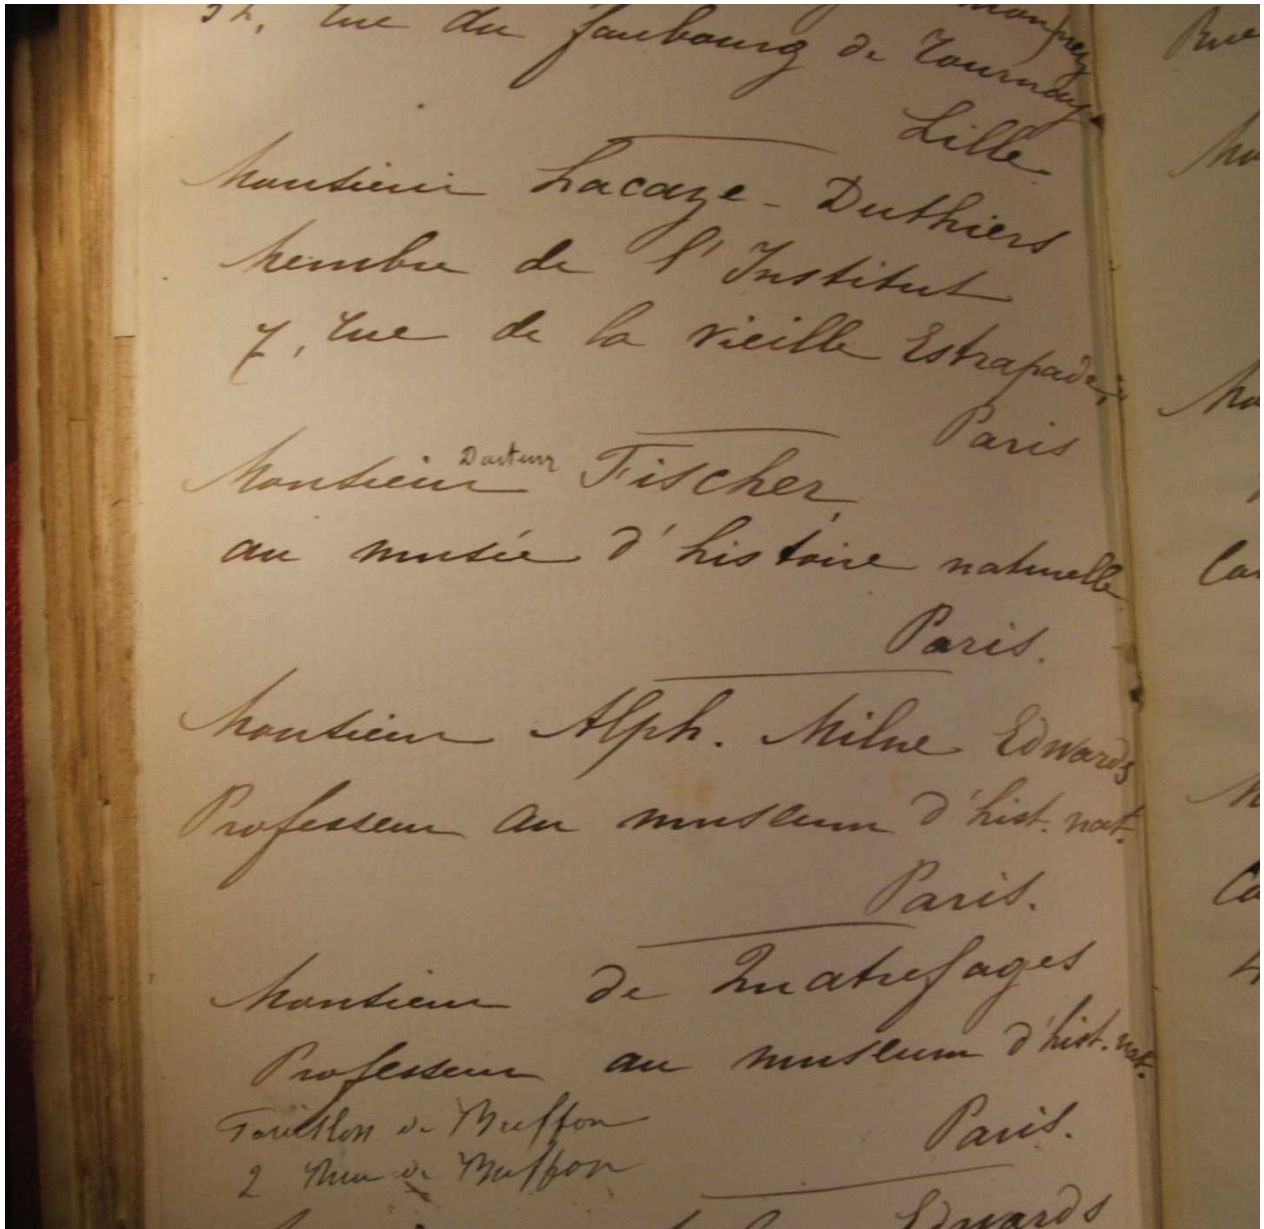 rue du faubourg de Tournay
Lille
Monsieur Lacaze-Duthiers
Membre de l'Institut
7, rue de la vieille Estrapade,
Paris
Monsieur Docteur Fischer,
au musée d'histoire naturelle
Paris.
Monsieur Alph. Milne Edwards
Professeur au museum d'hist. nat.
Paris.
Monsieur de Quatrefages
Professeur au museum d'hist. nat.
Paris.
Pavillon de Buffon
2 Rue de Buffon
Edwards
Rue